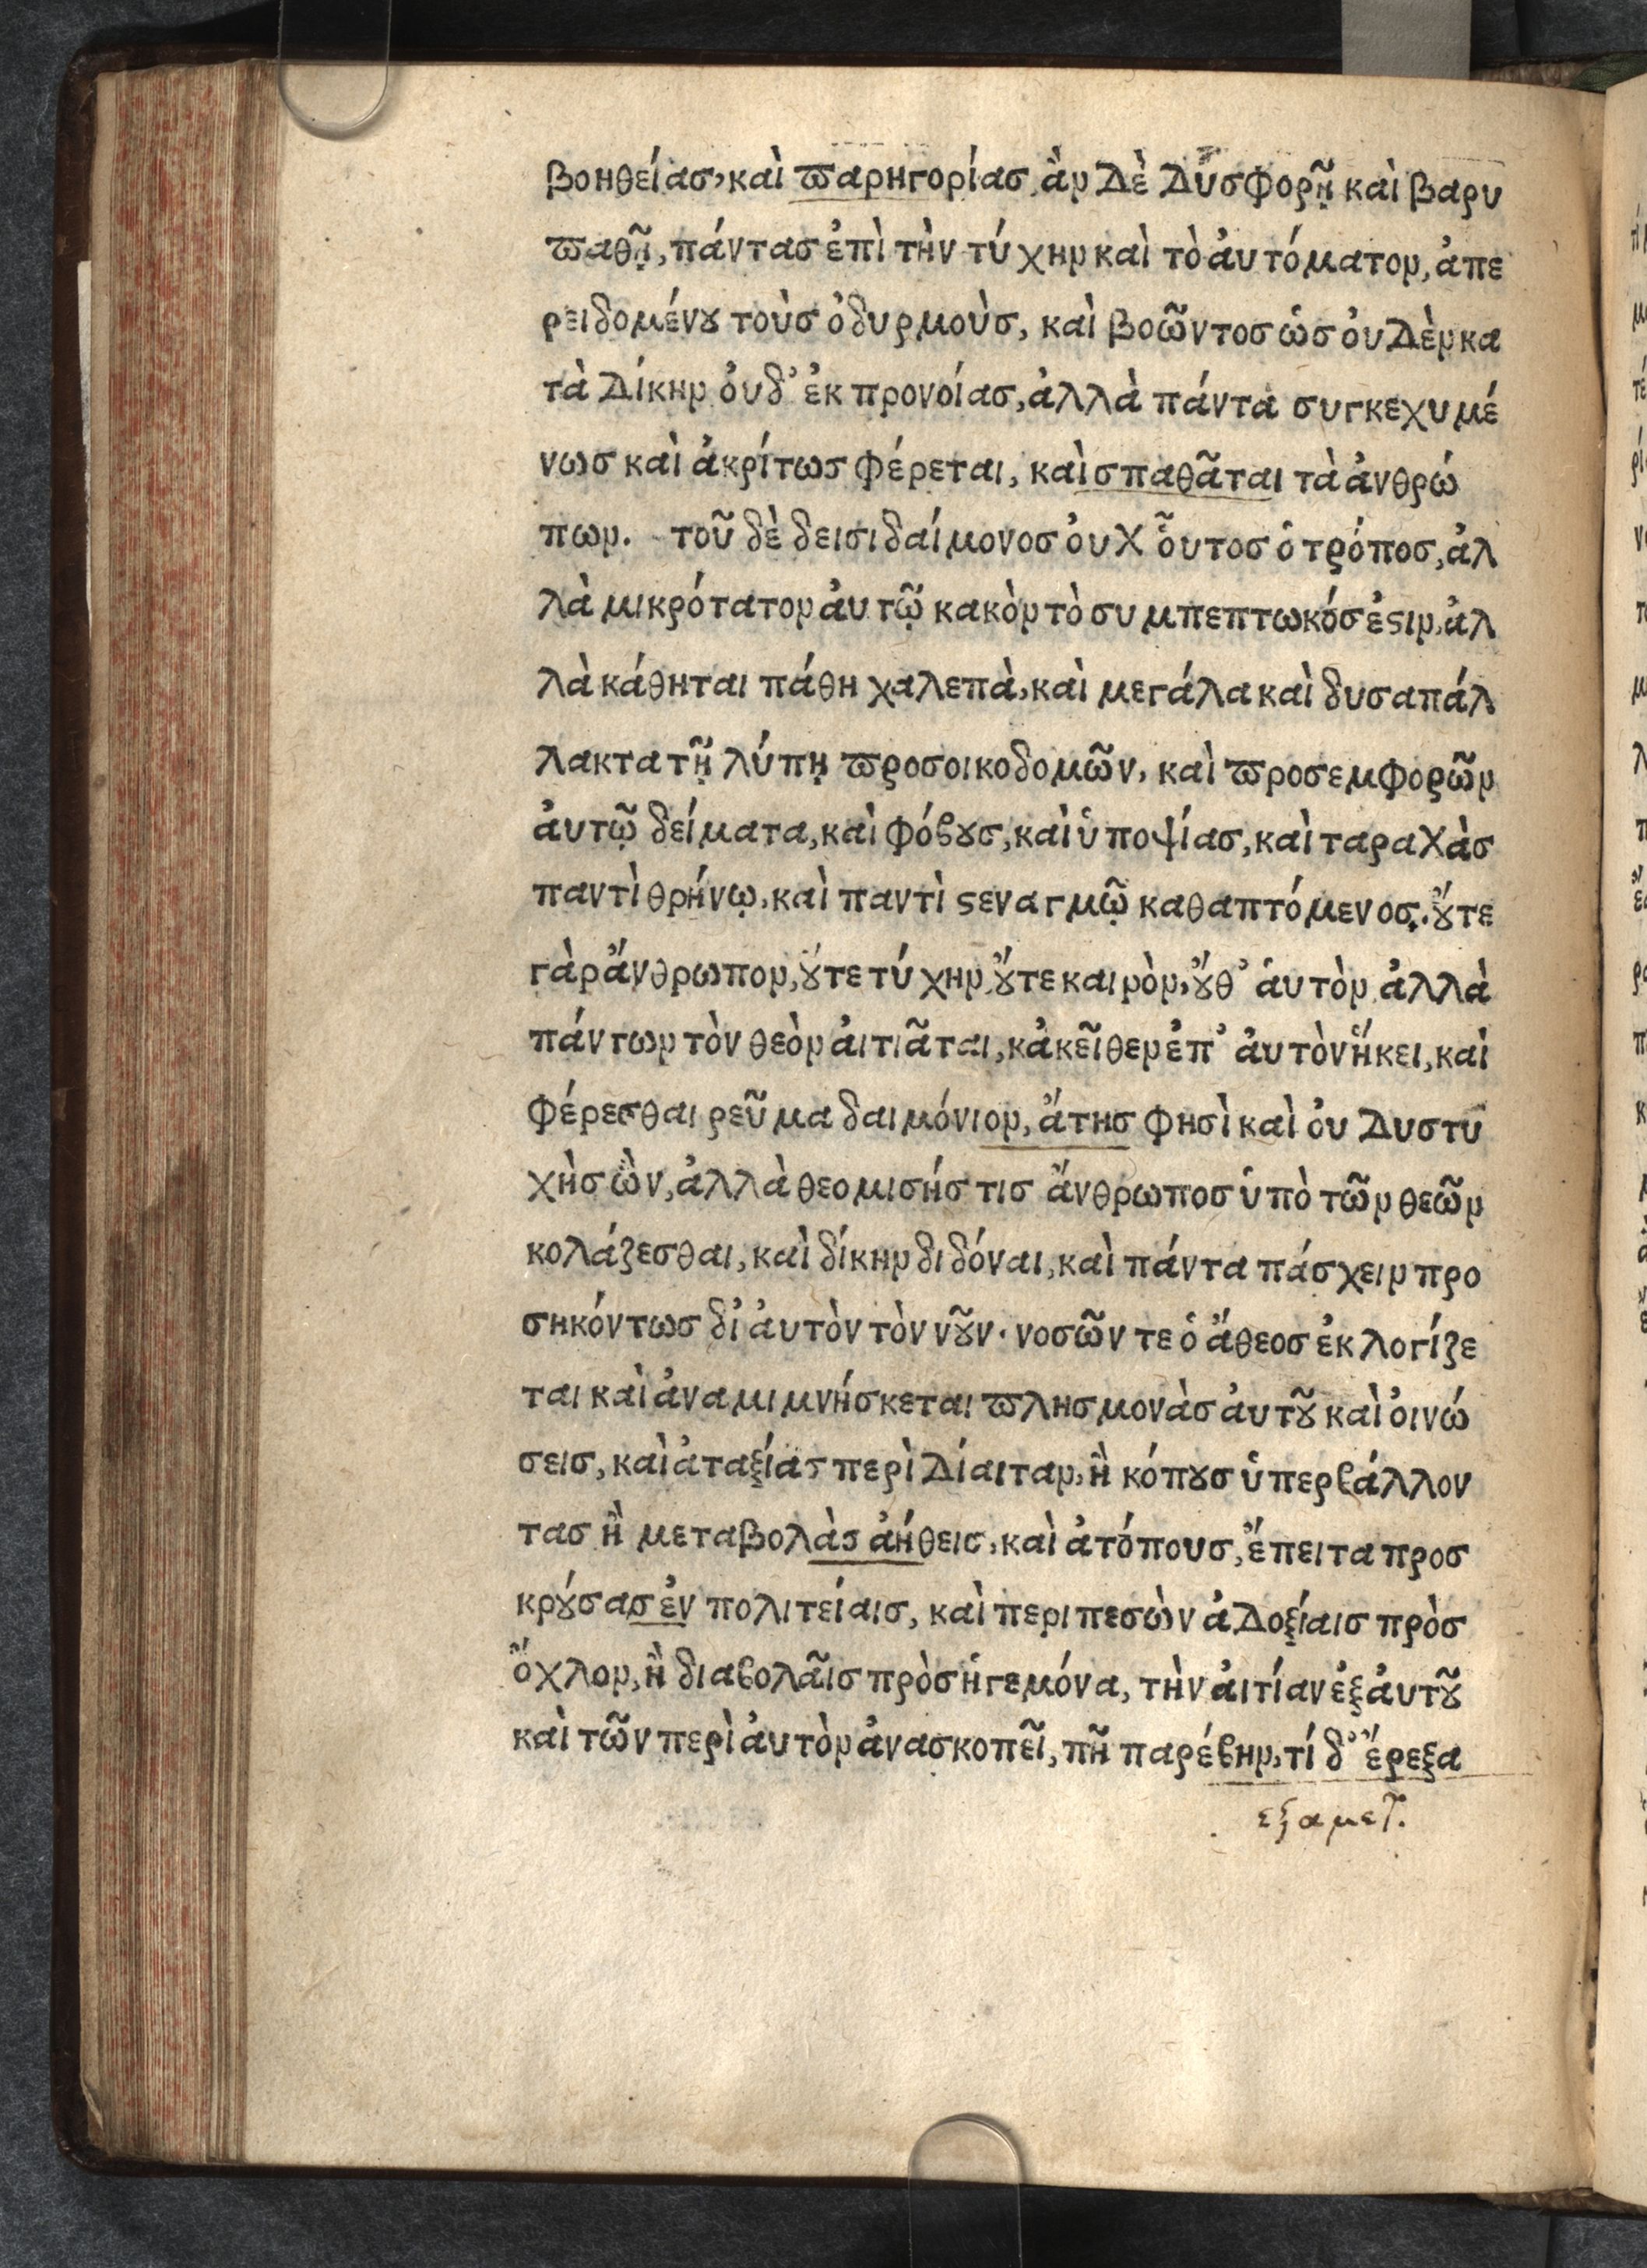 βοηθείας, καὶ παρηγορίας. ἂν δὲ δυσφορῇ καὶ βαρυ
παθῇ, πάντας ἐπὶ τὴν τύχην καὶ τὸ ἀυτόματον, ἀπε
ρειδομένου τοὺς ὀδυρμοὺς, καὶ βοῶντος ὡς ὀυδὲν κα
τὰ δίκην ὀυδ᾽ ἐκ προνοίας, ἀλλὰ πάντα συγκεχυμέ
νως καὶ ἀκρίτως φέρεται, καὶ σπαθᾶται τὰ ἀνθρώ
πων. τοῦ δὲ δεισιδαίμονος ὀυχ ὅυτος ὁ τρόπος, ἀλ
λὰ μικρότατον ἀυτῷ κακὸν τὸ συμπεπτωκός ἐστιν, ἀλ
λὰ κάθηται πάθη χαλεπὰ, καὶ μεγάλα καὶ δυσαπάλ
λακτα τῇ λύπῃ προσοικοδομῶν, καὶ προσεμφορῶν
ἀυτῷ δείματα, καὶ φόβους, καὶ ὑποψίας, καὶ ταραχὰς
παντὶ θρήνῳ, καὶ παντὶ στεναγμῷ καθαπτόμενος. οὔτε
γὰρ ἄνθρωπον, οὔτε τύχην, οὔτε καιρὸν, οὔθ᾽ ἁυτὸν ἀλλὰ
πάντων τὸν θεὸν ἀιτιᾶται, κἀκεῖθεν ἐπ᾽ ἀυτὸν ἥκει, καὶ
φέρεσθαι ῥεῦμα δαιμόνιον, ἄτης φησὶ καὶ ὀυ δυστυ
χὴς ὢν, ἀλλὰ θεομισής τις ἄνθρωπος ὑπὸ τῶν θεῶν
κολάζεσθαι, καὶ δίκην διδόναι, καὶ πάντα πάσχειν προ
σηκόντως δἰ ἀυτὸν τὸν νοῦν. νοσῶν τε ὁ ἄθεος ἐκλογίζε
ται καὶ ἀναμιμνήσκεται πλησμονὰς ἀυτοῦ καὶ ὀινώ
σεις, καὶ ἀταξίας περὶ δίαιταν, ἢ κόπους ὑπερβάλλον
τας ἢ μεταβολὰς ἀήθεις, καὶ ἀτόπους, ἔπειτα προσ
κρούσας ἐν πολιτείαις, καὶ περιπεσὼν ἀδοξίαις πρὸς
ὄχλον, ἢ διαβολᾶις πρὸς ἡγεμόνα, τὴν ἀιτίαν ἐξ ἀυτοῦ
καὶ τῶν περὶ ἀυτὸν ἀνασκοπεῖ, πῆ παρέβην, τί δ᾽ ἔρεξα
εξαμετ.